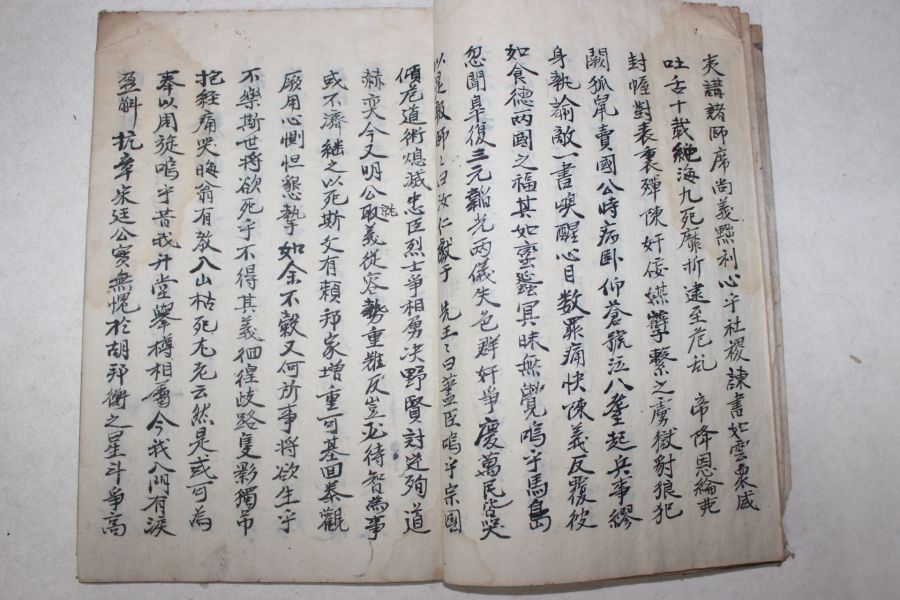 夷講諸師席尚義黜利心乎社稷諫書如雲裏咸
吐舌十載絶海九死靡折逮至危乱 帝降恩綸
封幄對表裏彈陳奸佞媒孼繫之虜獄豺狼犯
闕狐鼠賣國公時病卧仰蒼號泣八耋起兵事繆
身執諭敵一書喚醒心目数罪痛快陳義反覆彼
如食德两國之福其如蠻蠢冥昧無覺嗚乎馬島
忽聞皐復三元韜光两儀失色群奸爭慶萬民咨哭
以是報師師曰汝仁獻于 先王王曰藎臣嗚乎宗國
傾危道術熄滅忠臣烈士爭相勇决野賢討逆殉道
赫奕今又明公取義從容就勢重難反豈必待智為事
或不濟繼之以死斯文有賴邦家增重可基回泰觀
厥用心惻怛懇摯如余不穀又何所事将欲生乎
不樂斯世将欲死乎不得其義徊徨歧路隻影獨吊
抱経痛哭晦翁有教入山枯死尤老云然是或可為
奉以用旋嗚乎昔我升堂舉樽相屬今我入門有淚
盈㪺抗章朱廷公實無愧於胡邦衡之星斗爭高